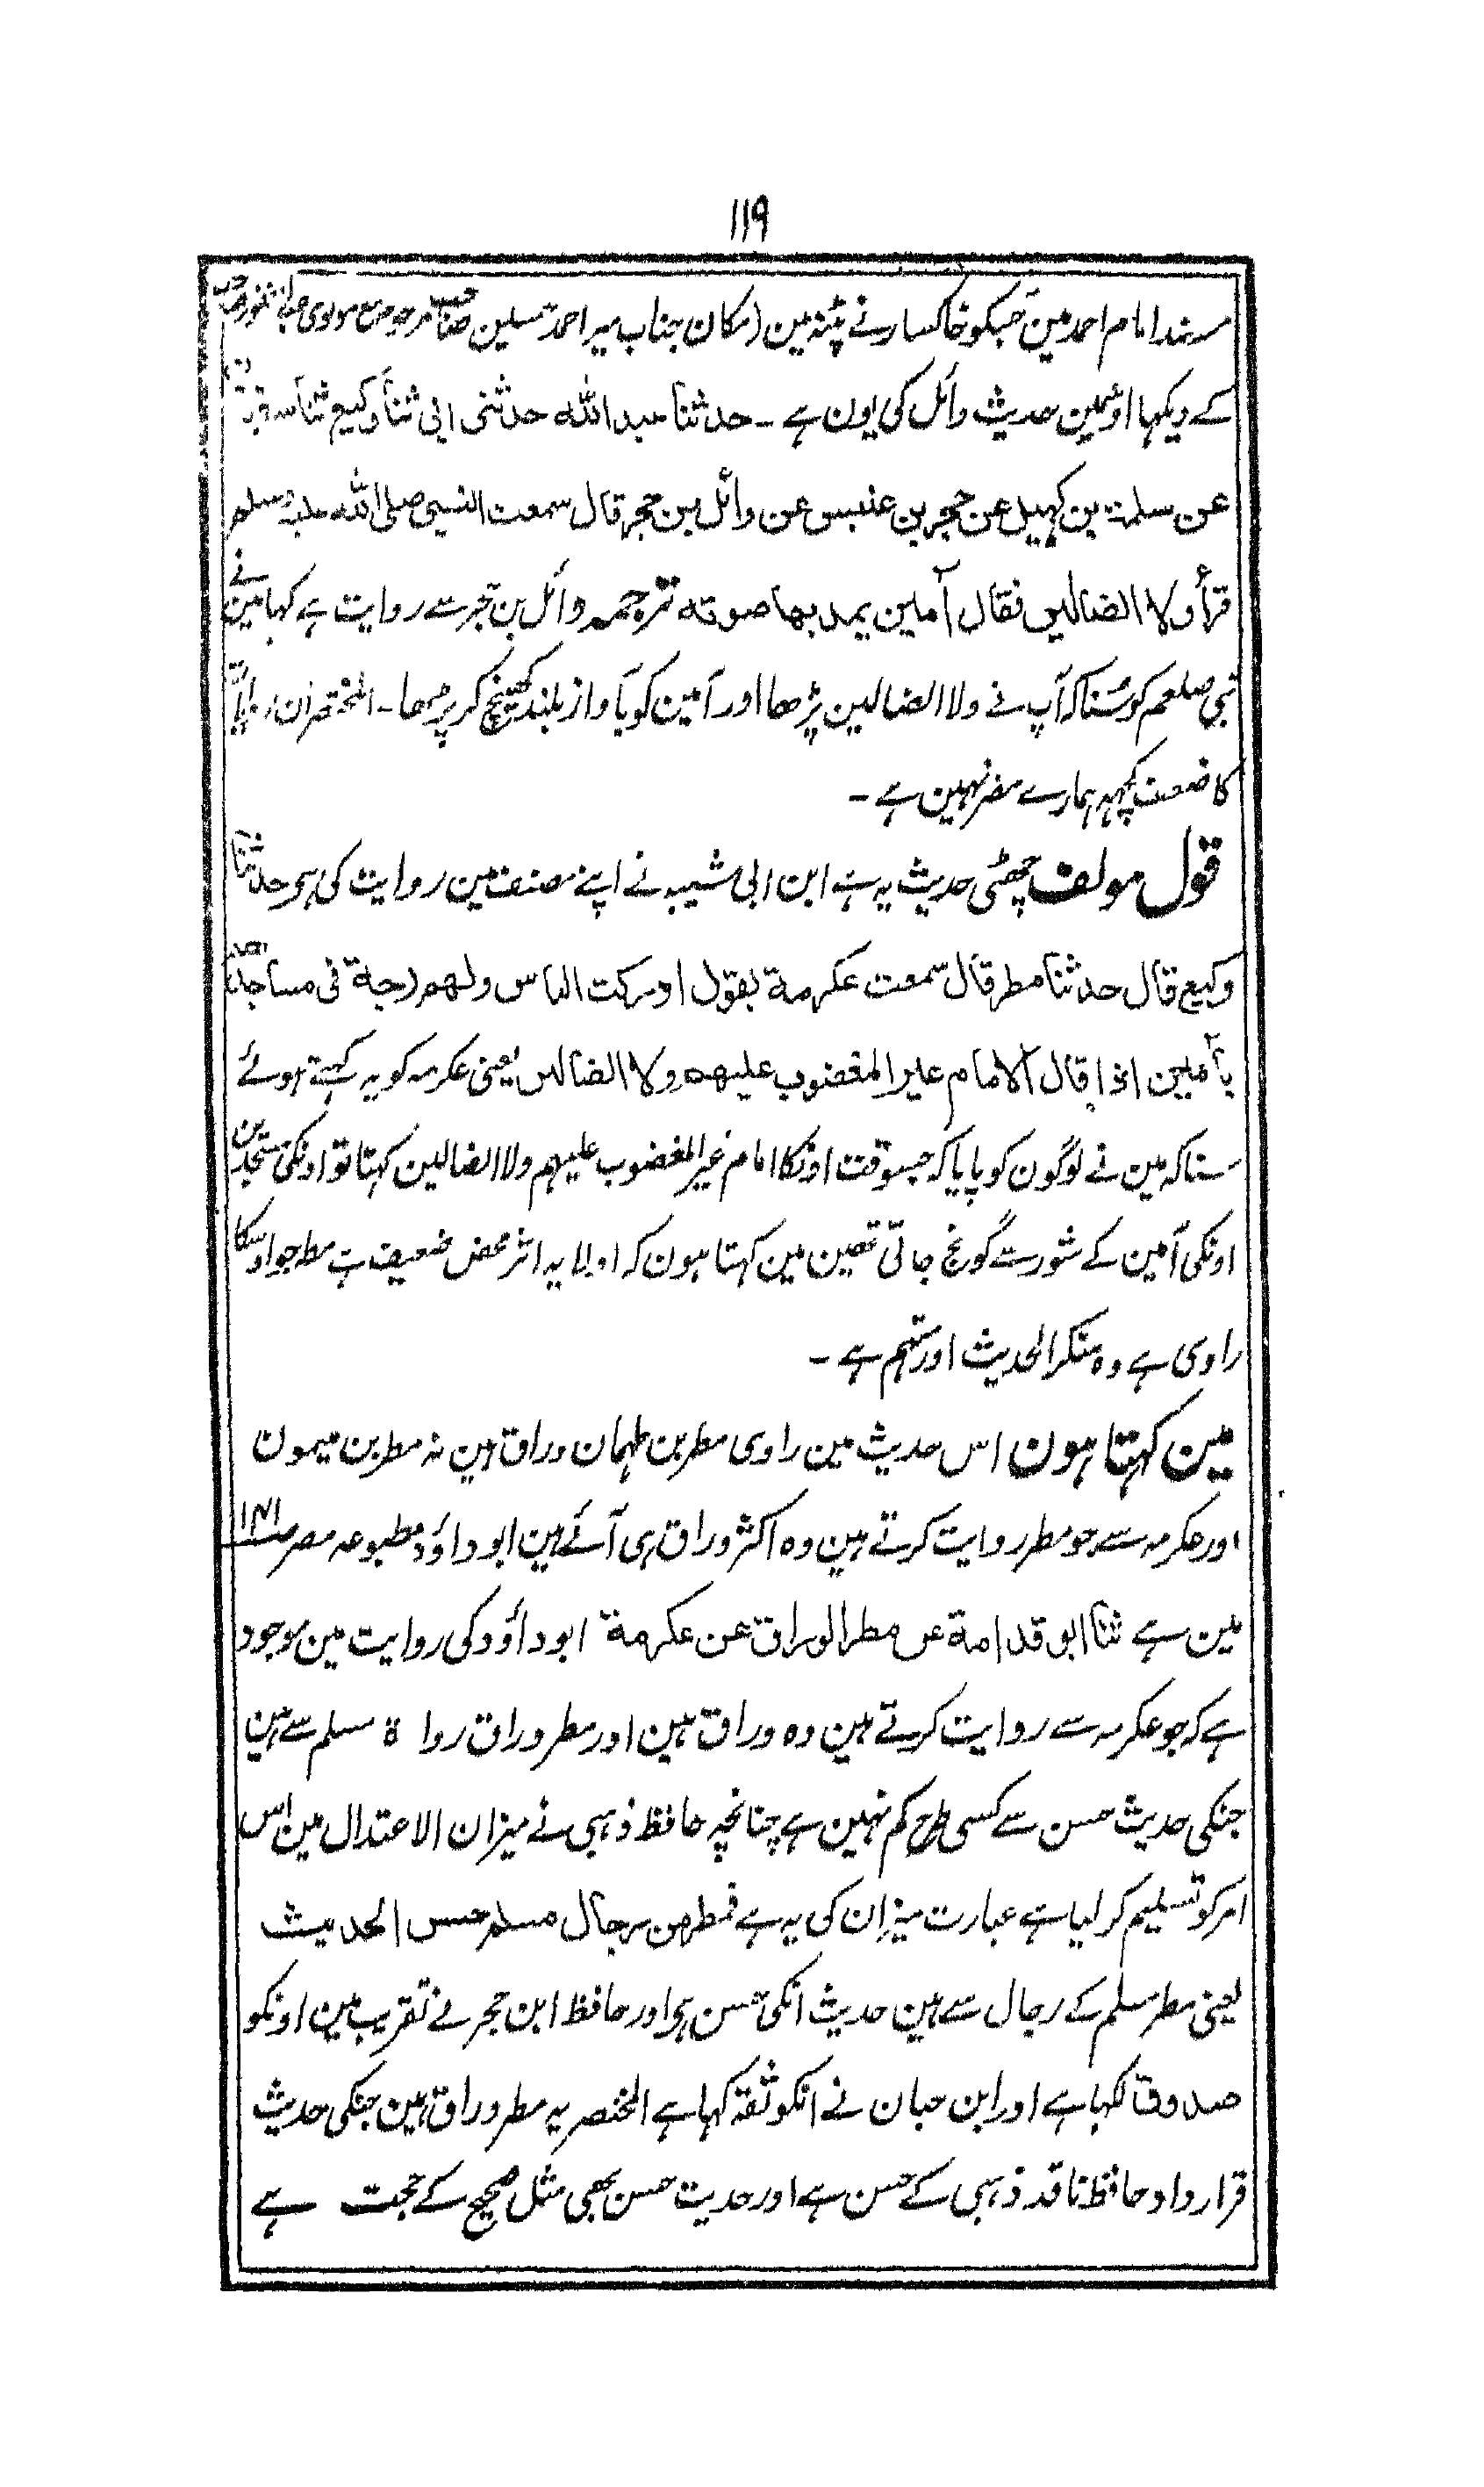 ۱۱۹
مسند امام احمد مین جسکو خاکسار نے پٹنہ مین (مکان جناب میر احمد حسین صاحب مرحوم مع مولوی
کے دیکہا اوسمین حدیث وائل کی یون ہے ۔ حدثنا عبد الله حدثنی ابی ثنا وکیع ثنا
عن سلمة بن کہیل عن حجر بن عنبس عن وائل بن حجر قال سمعت النبی صلی الله علیہ وسلم
قرأ ولا الضالین فقال آمین یمد بها صوته ترجمہ وائل بن حجر سے روایت ہے کہا مین نے
نبی صلعم کو سُنا کہ آپ نے ولا الضالین پڑھا اور آمین کو بآواز بلند کھینچ کر پڑھا ۔ المختصر ان
کا ضعف کچہہ ہمارے مضر نہین ہے ۔
قول مولف چھٹی حدیث یہ ہے ابن ابی شیبہ نے اپنے مصنف مین روایت کی ہی حدثنا
وکیع قال حدثنا مطر قال سمعت عکرمة یقول ادرکت الناس ولهم رجة فی مساجدهم
بآمین اذا قال الامام غیر المغضوب علیهم ولا الضالین یعنی عکرمہ کو یہ کہتے ہوئے
سنا کہ مین نے لوگون کو پایا کہ جسوقت اونکا امام غیر المغضوب علیہم ولا الضالین کہتا تو اونکی مسجدین
اونکی آمین کے شور سے گونج جاتی تھین مین کہتا ہون کہ اولا یہ اثر محض ضعیف ہے مطر جو اوسکا
راوی ہے وہ منکر الحدیث اور متہم ہے ۔
مین کہتا ہون اس حدیث مین راوی مطر بن طہمان وراق ہین نہ مطر بن میمون
اور عکرمہ سے جو مطر روایت کرتے ہین وہ اکثر وراق ہی آئے ہین ابو داؤد مطبوعہ مصر صـ۱۴۱
مین ہے ثنا ابو قدامة عن مطر الوراق عن عکرمة ابو داؤد کی روایت مین موجود
ہے کہ جو عکرمہ سے روایت کرتے ہین وہ وراق ہین اور مطر وراق رواة مسلم سے ہین
جنکی حدیث حسن سے کسی طرح کم نہین ہے چنانچہ حافظ ذہبی نے میزان الاعتدال مین اس
امر کو تسلیم کر لیا ہے عبارت میزان کی یہ ہے فمطر من رجال مسلم حسن الحدیث
یعنی مطر مسلم کے رجال سے ہین حدیث انکی حسن ہی اور حافظ ابن حجر نے تقریب مین اونکو
صدوق لکہا ہے اور ابن حبان نے انکو ثقہ کہا ہے المختصر یہ مطر وراق ہین جنکی حدیث
قرارداد حافظ ناقد ذہبی کے حسن ہے اور حدیث حسن بھی مثل صحیح کے حجت ہے